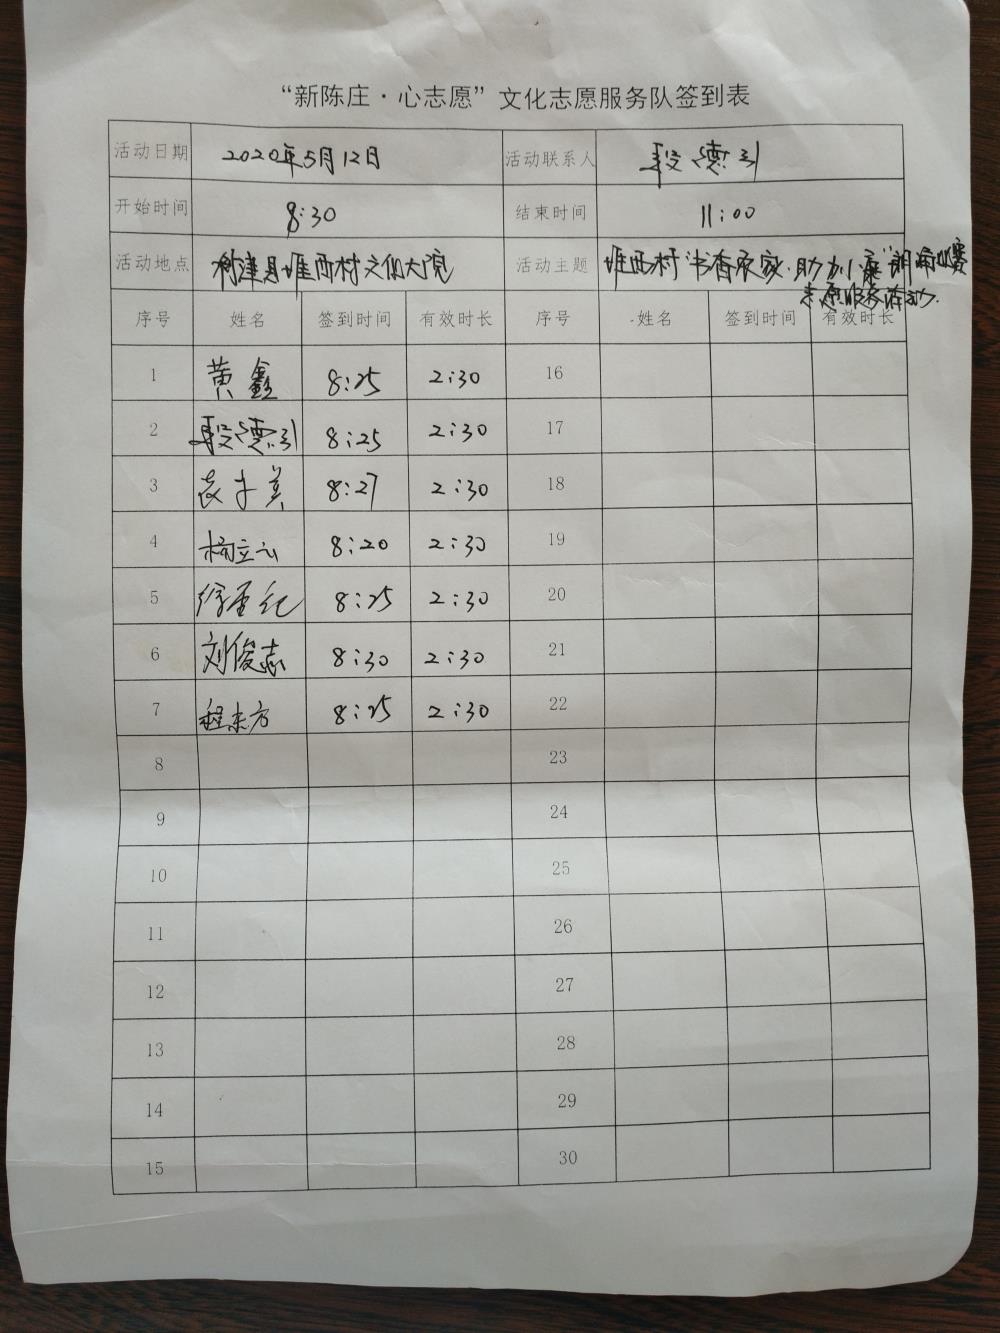 “新陈庄·心志愿”文化志愿服务队签到表
活动日期 2020年5月12日 活动联系人 段德引
开始时间 8:30 结束时间 11:00
活动地点 利津县堐西村文化大院 活动主题 堐西村“书香农家·助力小康”朗诵比赛
志愿服务活动.
序号 姓名 签到时间 有效时长 序号 姓名 签到时间 有效时长
1 黄鑫 8:25 2:30 16
2 段德引 8:25 2:30 17
3 袁 英 8:27 2:30 18
4 杨立云 8:20 2:30 19
5 徐 红 8:25 2:30 20
6 刘俊志 8:30 2:30 21
7 程东方 8:25 2:30 22
8 23
9 24
10 25
11 26
12 27
13 28
14 29
15 30